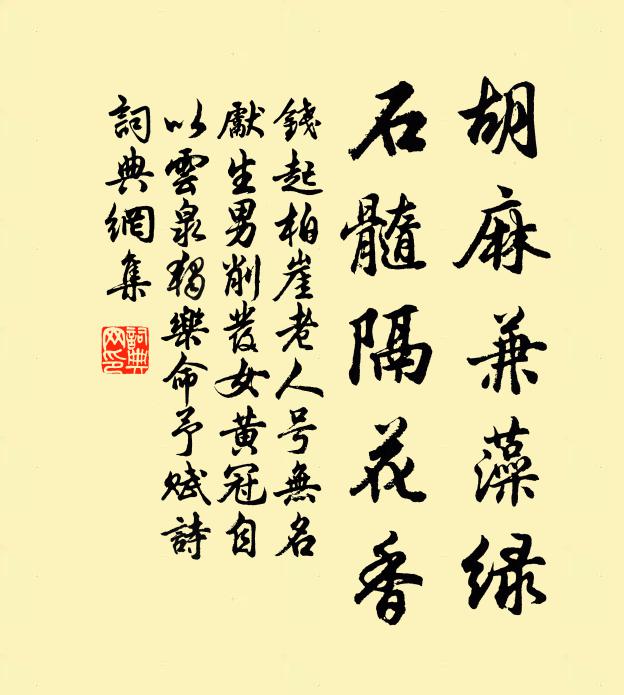 胡麻兼藻绿
石髓隔花香
錢起柏崖老人号無名
獻生男削發女黃冠自
以雲泉獨樂命予賦詩
詞典網集
詞典
网印